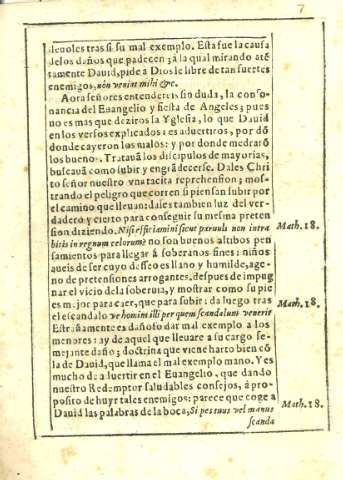 7
deuoles tras si su mal exemplo. Esta fue la causa
delos daños que padecen; a la qual mirando atẽ
tamente Dauid, pide a Dios le libre de tan fuertes
enemigos, non veniat mihi &c.
Aora señores entendereis sin duda, la conso-
nancia del Euangelio y fiesta de Angeles; pues
no es mas que deziros la Yglesia, lo que Dauid
en los versos explicados: es aduertiros, por dõ
donde cayeron los malos: y por donde medrarõ
los buenos. Tratauã los discipulos de mayorias,
buscauã como subir y engrãdecerse. Dales Chri
sto señor nuestro vna tacita reprehension; mos-
trando el peligro que corren si piensan subir por
el camino que lleuan: dales tambien luz del ver-
dadero y cierto para conseguir su mesma preten
sion diziendo. Nisi efficiamini sicut paruuli non intra
bitis in regnum celorum: no son buenos altibos pen
samientos para llegar á soberanos fines: niños
aueis de ser cuyo desseo es llano y humilde, age-
no de pretensiones arrogantes. despues de impug
nar el vicio de la soberuia, y mostrar como su pie
es mejor para caer, que para subir: da luego tras
el escandalo ve homini illi per quem scandalum venerit
Estrañamente es dañoso dar mal exemplo a los
menores: ay de aquel que lleuare a su cargo se-
mejante daño; doctrina que viene harto bien cõ
la de Dauid, que llama el mal exemplo mano. Y es
mucho de aduertir en el Euangelio, que dando
nuestro Redemptor saludables consejos, á pro-
posito de huyr tales enemigos: parece que coge a
Dauid las palabras de la boca, Si pes tuus vel manus
scanda
Math. 18.
Math. 18.
Math. 18.